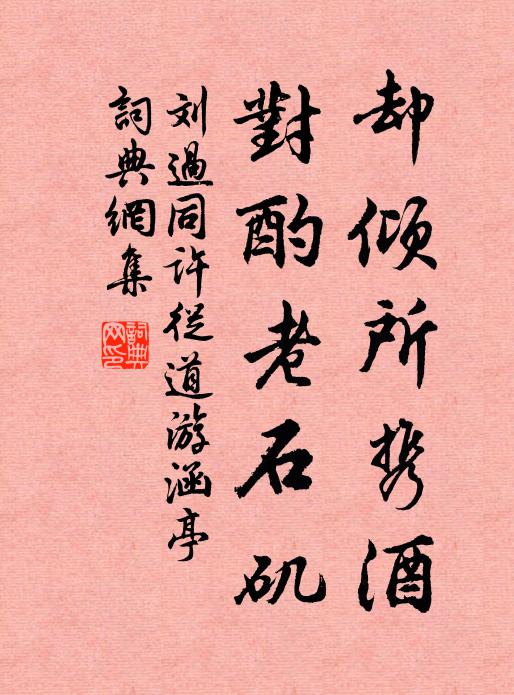 却倾所携酒
對酌老石矶
刘過同许從道游涵亭
詞典網集
詞典网印